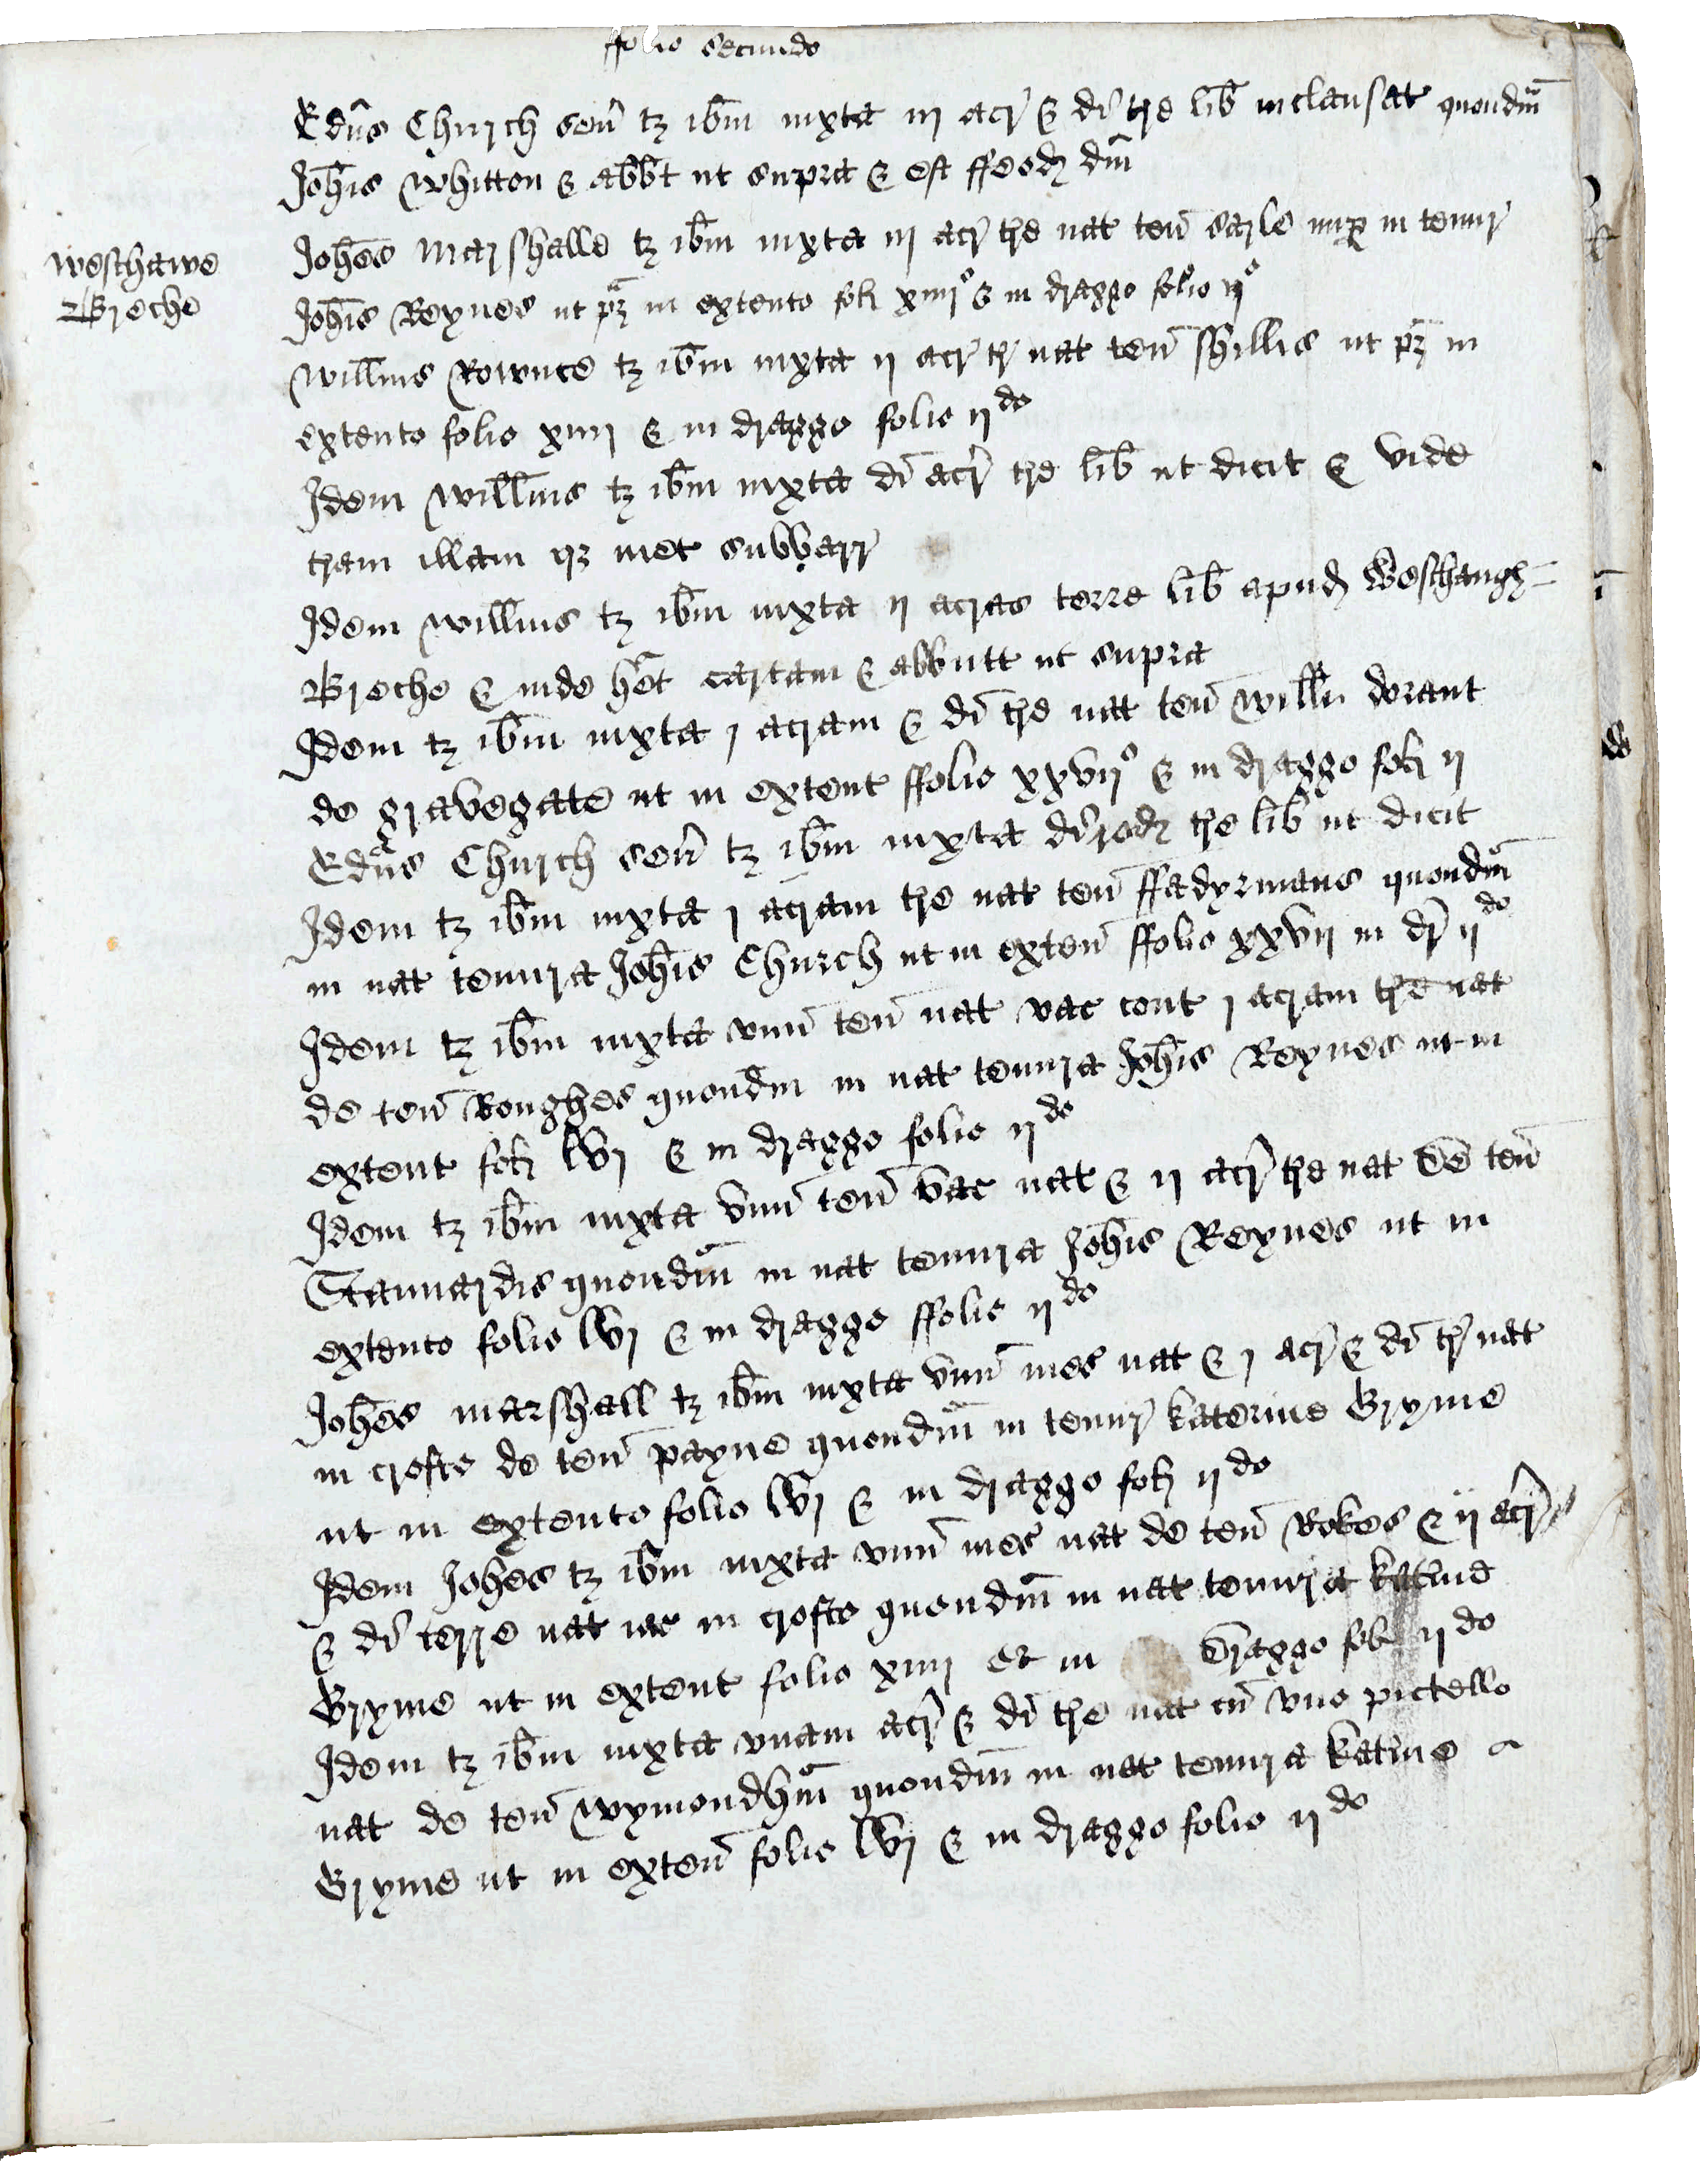 ffolio secundo
Edūs Church señ tz ibm iuxta iij acr̄ & di tre lib inclausat quondm̄
Joħis Whitton & abbt ut supra & est ffeod dm̄
Weschawe
Breche
Joħes Marshalle tz ibm iuxta iij acr̄ tre nat teñ Carle nup in tenur
Joħis Reynes ut pz in extento fol xiiijº & in draggo folio ijº
Willms Rownce tz ibm iuxta ij acr̄ tr̄ nat teñ Shillis ut pz in
extento folio xiiij & in draggo folio ijdo
Idem Willms tz ibm iuxta di acr̄ tre lib ut dicit & vide
tram illam qz met
Idem Willms tz ibm iuxta ij acras terre lib apud Weschaugh=
Breche & inde het cartam & abbutt ut supra
Idem tz ibm iuxta j acram & di tre nat teñ Willi dorant
de Gravegate ut in extent ffolio xxvijº & in draggo fol ij
Edūs Church señ tz ibm iuxta di rod tre lib ut dicit
Idem tz ibm iuxta j acram tre nat teñ ffadyrmans quondm̄
in nat tenura Joħis Church ut in exteñ ffolio xxvij in dr̄ ijdo
Idem tz ibm iuxta vnū teñ nat vac cont j acram tre nat
de teñ Roughes quondm in nat tenura Joħis Reynes ut in
extent fol lvj & in draggo folio ijdo
Idem tz ibm iuxta vnū teñ vac nat & ij acr̄ tre nat de teñ
Stannardis quondm̄ in nat tenura Joħis Reynes ut in
extento folio lvj & in draggo ffolio ijdo
Joħes Marshall tz ibm iuxta vnū mes nat & j acr̄ & di tr̄ nat
in crofto de teñ Payne quondm̄ in tenur Katerine Gryme
ut in extento folio lvj & in draggo fol ijdo
Idem Joħes tz ibm iuxta vnū mes nat de teñ Rokes & ij acr̄
& di terre nat iac in crofto quondm̄ in nat tenura Katīne
Gryme ut in extent folio xiiij et in draggo fol ijdo
Idem tz ibm iuxta vnam acr̄ & di tre nat cū vno pictello
nat de teñ Wymondhm̄ quondm̄ in nat tenura Katīne
Gryme ut in exteñ folio lvj & in draggo folio ijdo